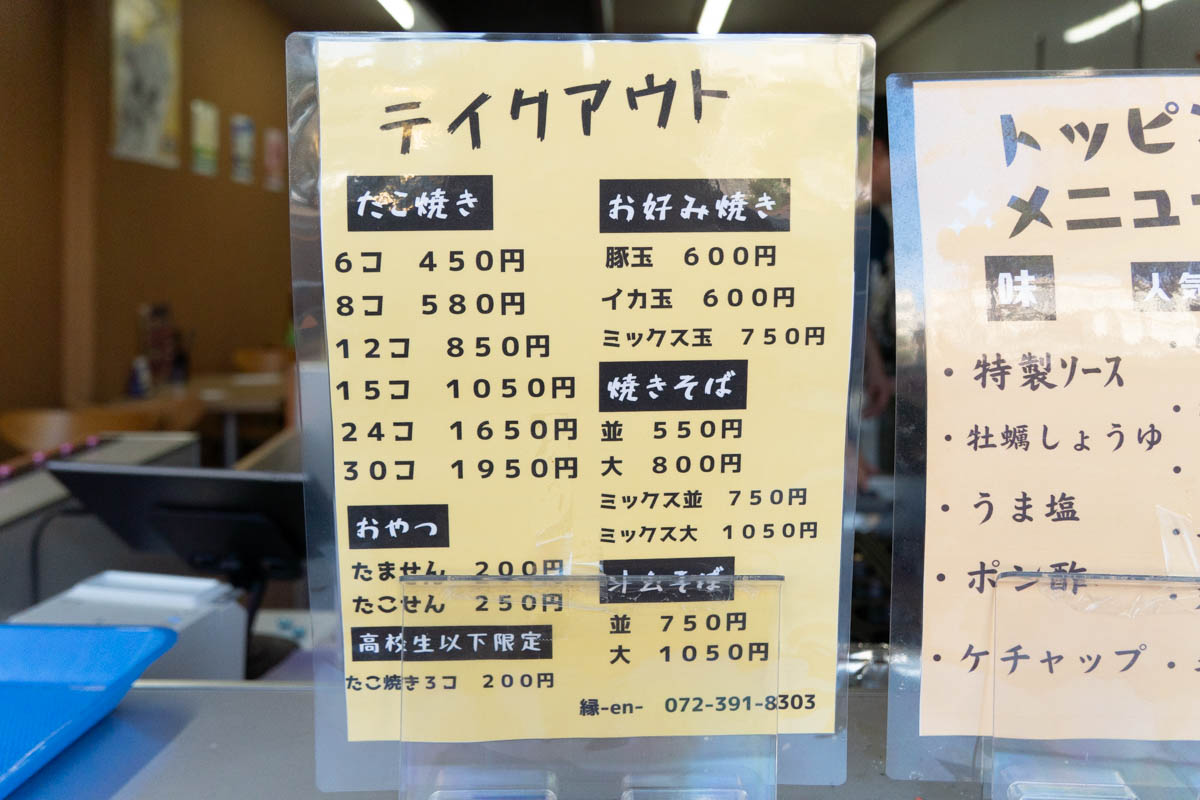 テイクアウト
たこ焼き
6コ 450円
8コ 580円
12コ 850円
15コ 1050円
24コ 1650円
30コ 1950円
おやつ
たません 200円
たこせん 250円
高校生以下限定
たこ焼き3コ 200円
お好み焼き
豚玉 600円
イカ玉 600円
ミックス玉 750円
焼きそば
並 550円
大 800円
ミックス並 750円
ミックス大 1050円
オムそば
並 750円
大 1050円
縁-en- 072-391-8303
トッピ
メニュー
味
人気
・特製ソース
・牡蠣しょうゆ
・うま塩
・ポン酢
・ケチャップ